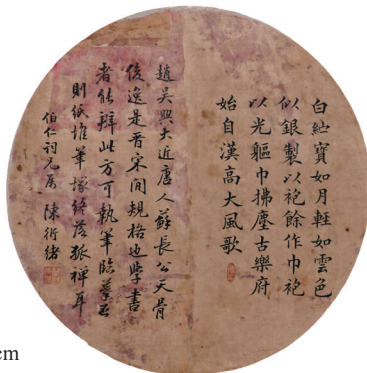 白紵寶如月輕如雲色
似銀製以袍餘作巾袍
以光軀巾拂塵古樂府
始自漢高大風歌
趙吳興大近唐人蘇長公天骨
俊逸是晉宋間規格也學書
者能辯此方可執筆臨摹否
則紙堆筆塚終落狐禪耳
伯仁詞兄屬 陳衍緒
cm